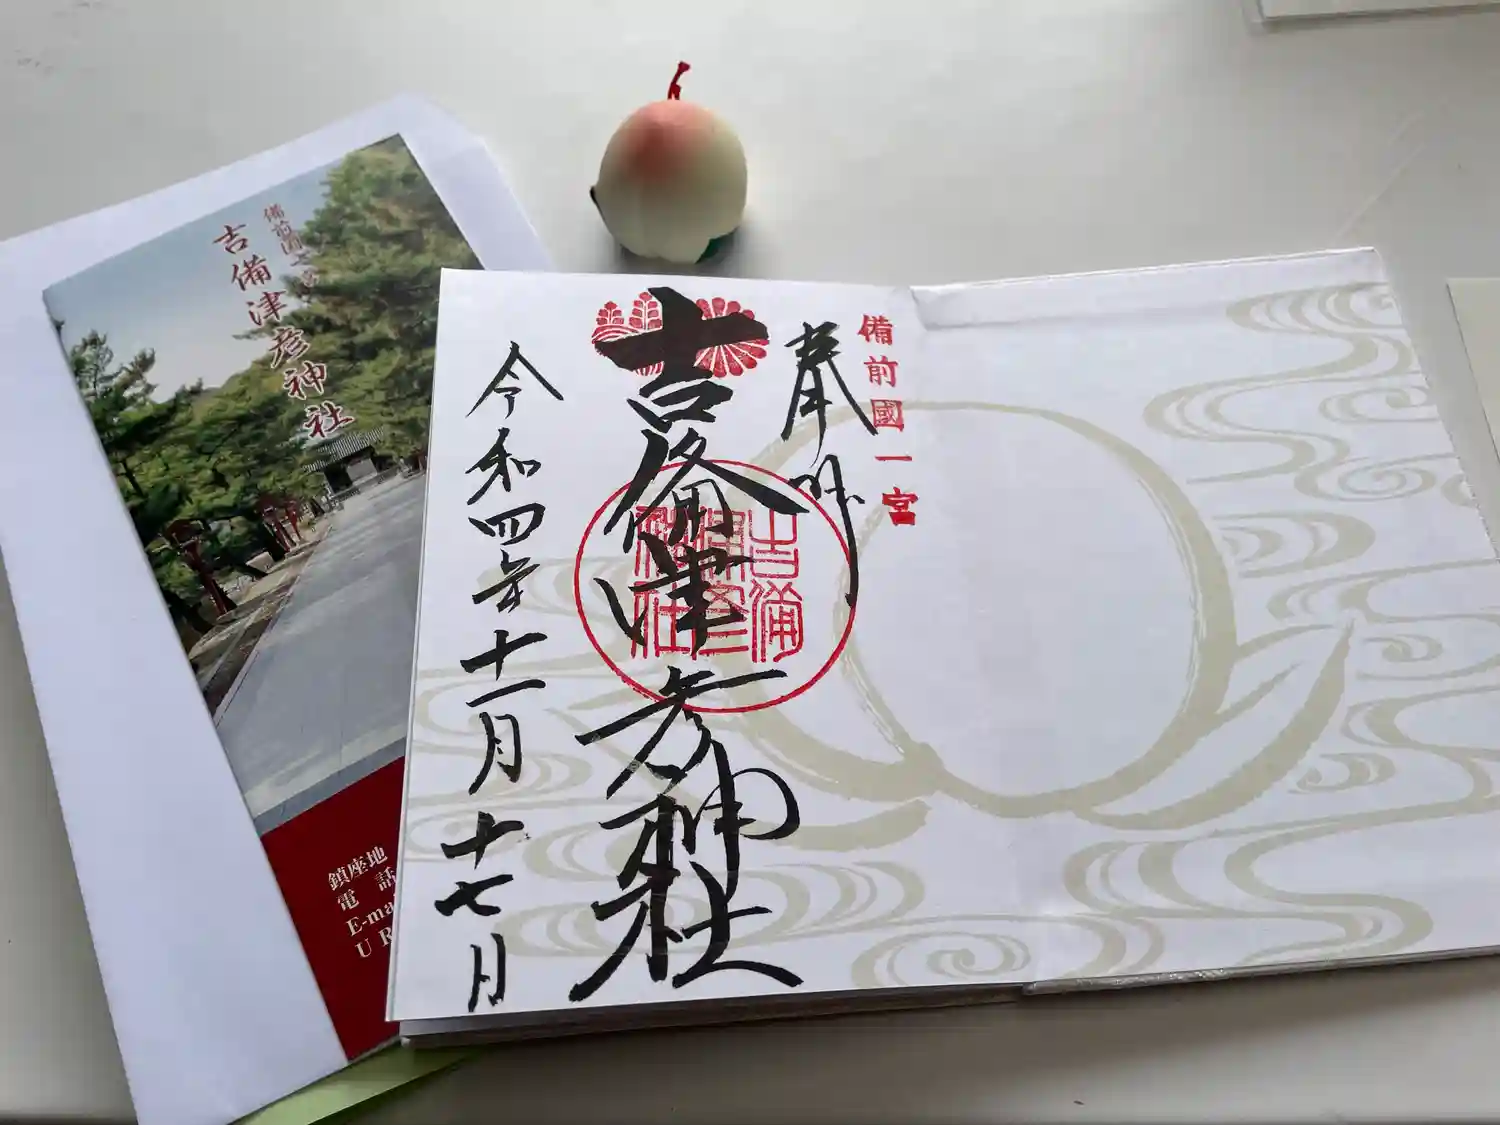 備前国一宮
吉備津彦神社
鎮座地
電話
E-ma
UR
備前國一宮
奉拝
吉備津彦神社
吉備
津彦
神社
令和四年十一月十七日